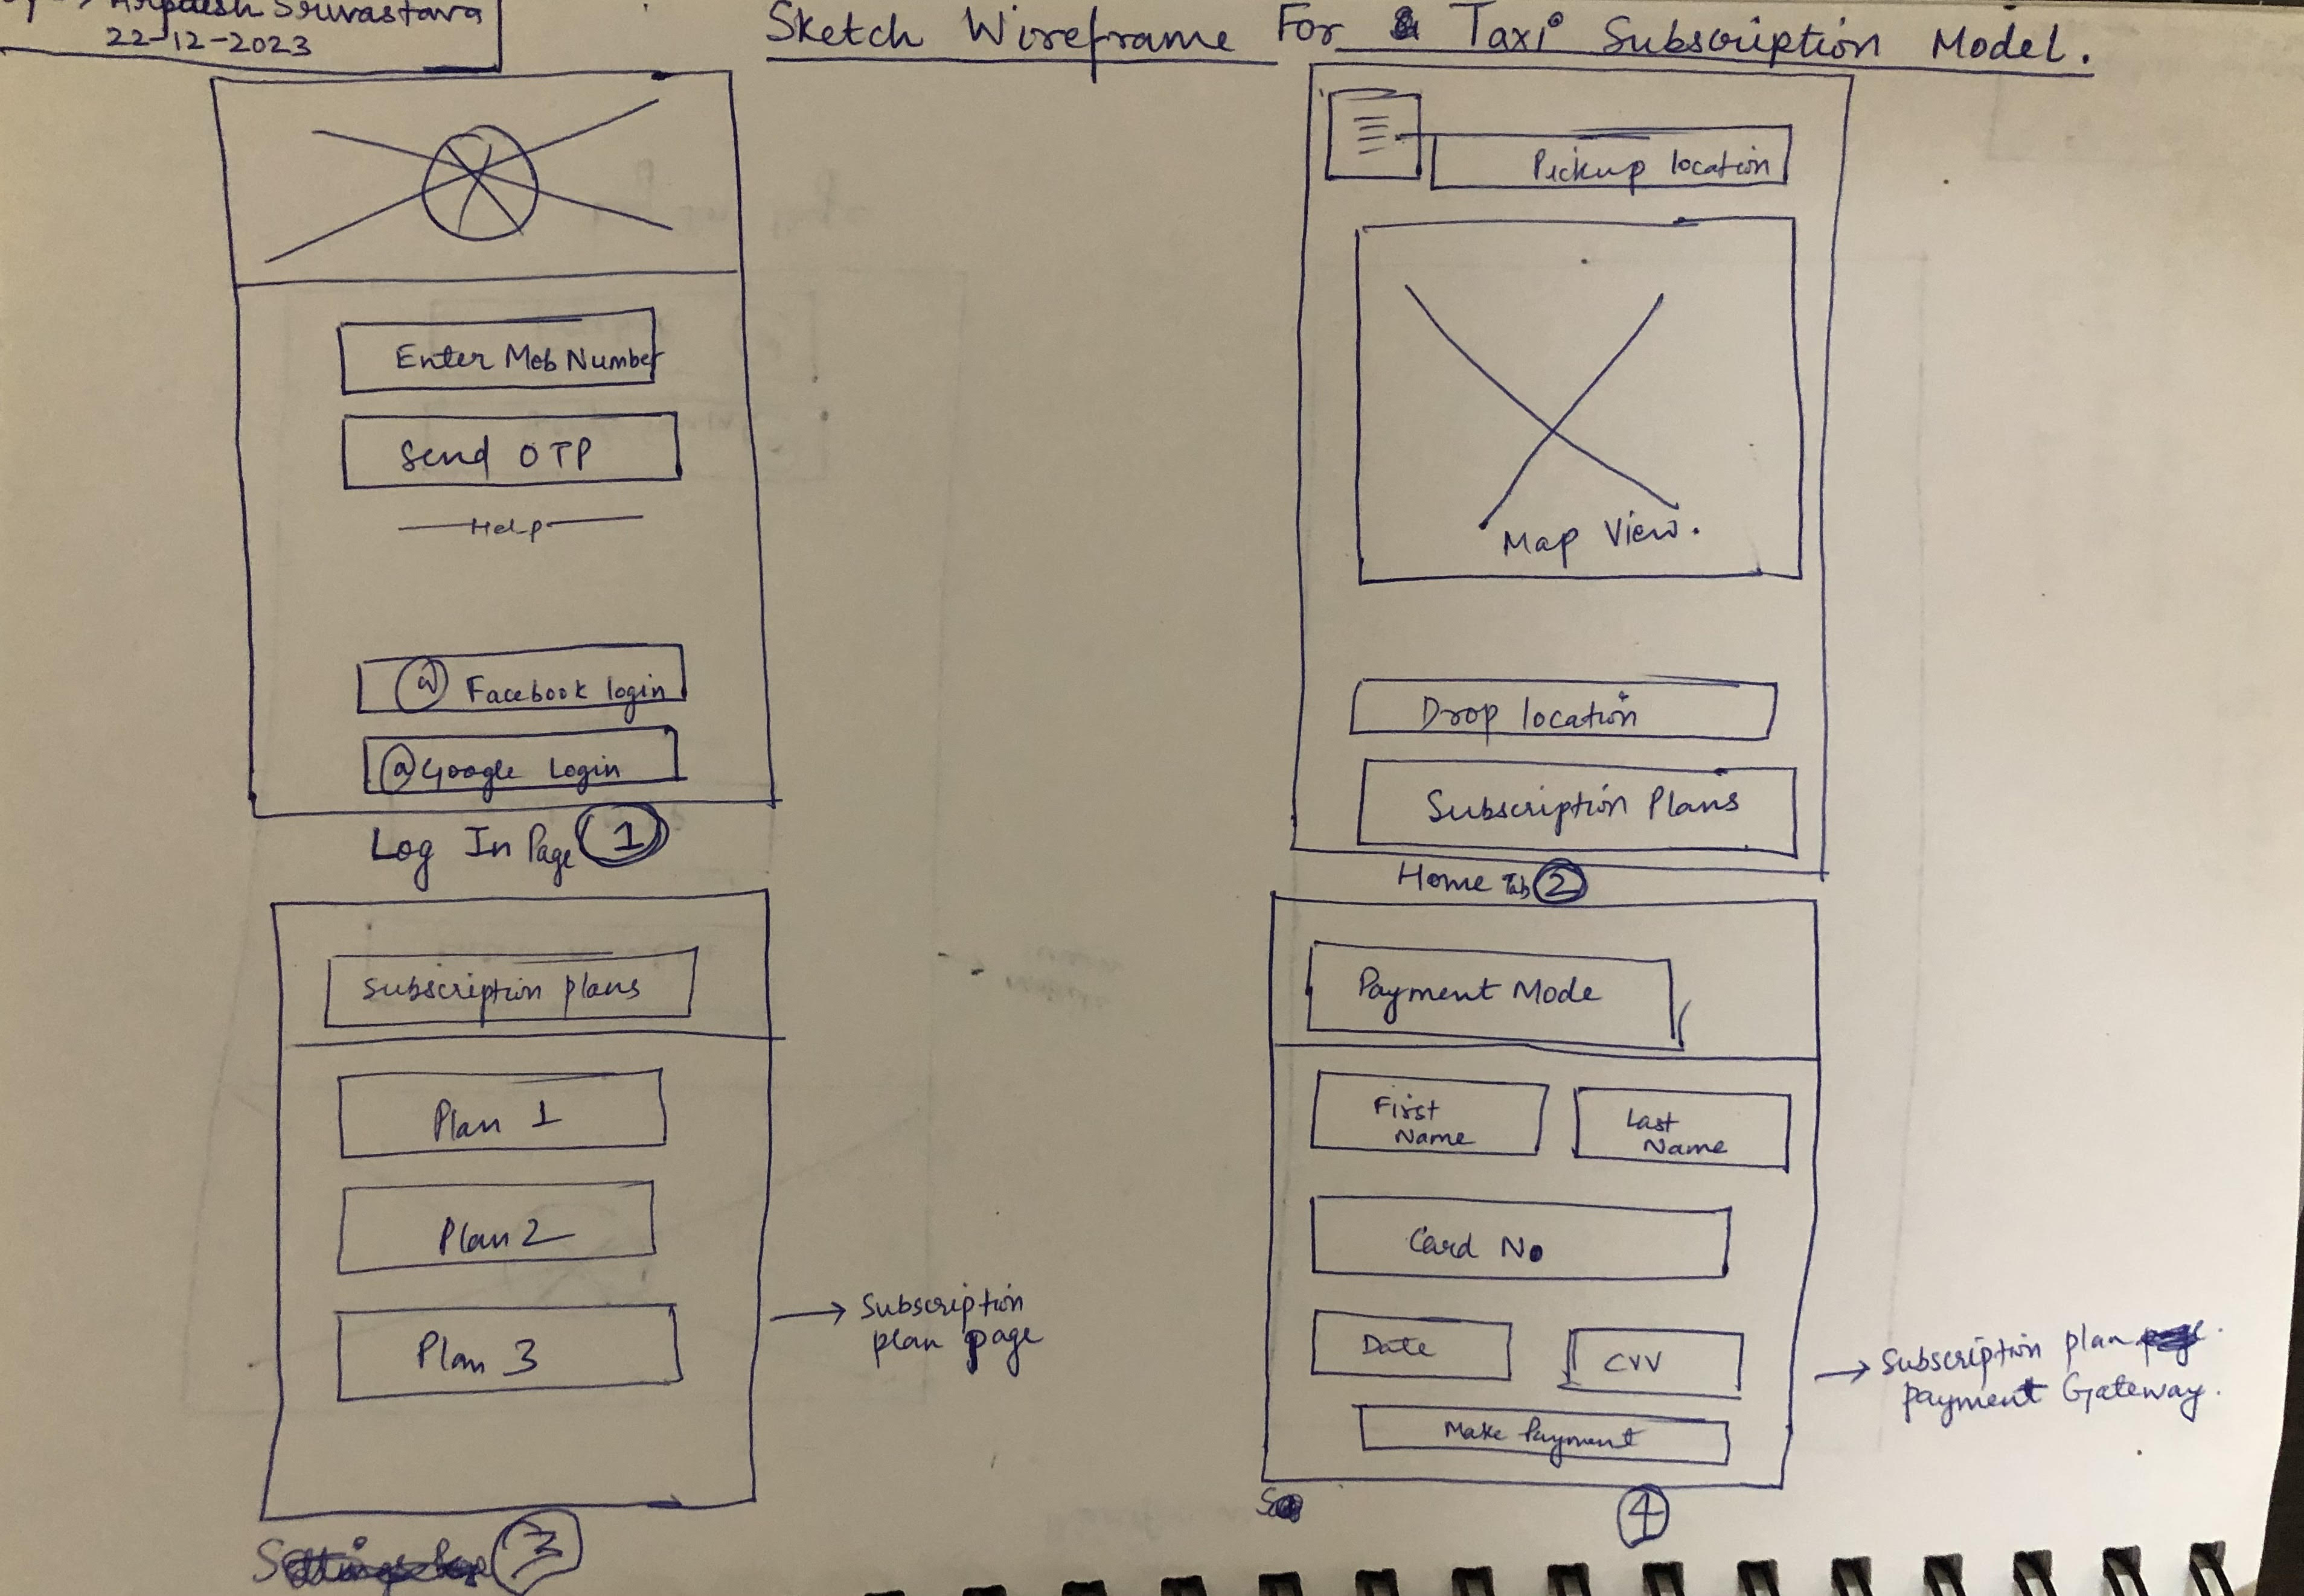 Srivastava
22-12-2023
Sketch Wireframe For a Taxi Subscription Model.
Enter Mob Number
Send OTP
Help
Facebook login
@ Google Login
Log In Page 1
Pickup location
Map View.
Drop location
Subscription Plans
Home Tab 2
Subscription plans
Plan 1
Plan 2
Plan 3
→ Subscription
plan page
3
Payment Mode
First
Name
Last
Name
Card No
Date
CVV
Make Payment
→ Subscription plan
payment Gateway.
4